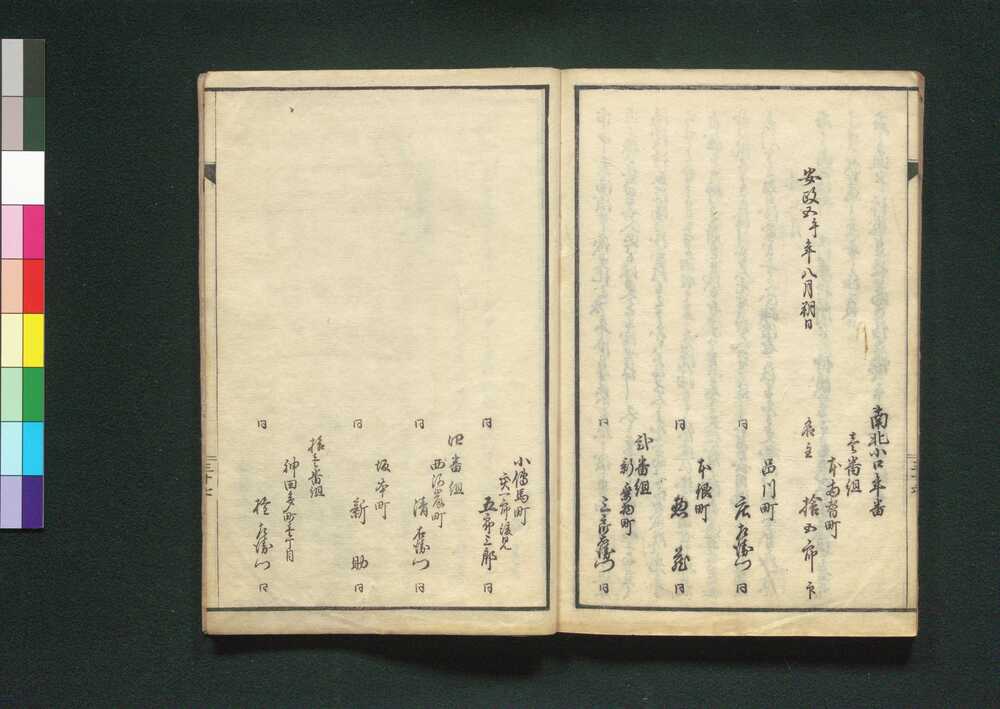 安政五午年八月朔日
南北小口年番
壱番組
本両替町
名主 捨五郎 印
品川町
同 庄左衛門 同
本銀町
同 惣蔵 同
弐番組
新乗物町
同 三郎右衛門 同
小伝馬町
同 五郎三郎 同
四番組
西河岸町
同 清右衛門 同
坂本町
同 新助 同
拾壱番組
神田多町壱丁目
同 左衛門 同